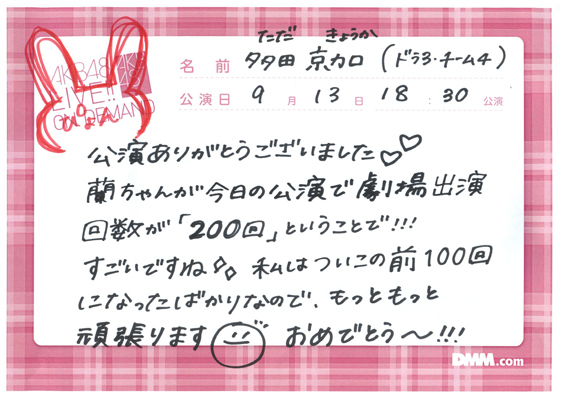 ただ きょうか
名前 多田 京加 (ドラ3・チーム4)
公演日 9 月 13 日 18 : 30 公演
AKB48
LIVE!!
ON DEMAND
ぴょん
公演ありがとうございました♡♡
蘭ちゃんが今日の公演で劇場出演
回数が「200回」ということで!!!
すごいですね 私はついこの前100回
になったばかりなので、もっともっと
頑張ります おめでとう〜!!!
DMM.com